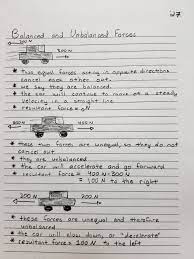 27
Balanced and Unbalanced Forces
300 N
* Two equal forces acting in opposite directions
cancel each other out.
* we say they are balanced.
* the car will continue to move at a steady
velocity in a straight line
* resultant force = 0N
* these two forces are unequal, so they do not
cancel out
* they are unbalanced
* the car will accelerate and go forward
* resultant force =
= 100 N to the right
200 N
100 N
* these forces are unequal and therefore
unbalanced
* the car will slow down, or "decelerate"
* resultant force 100 N to the left